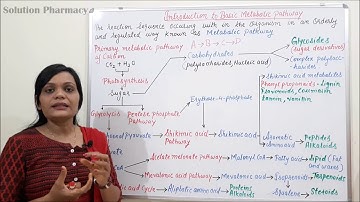 Solution Pharmacy
Introduction to Basic Metabolic Pathway
The Reaction sequence occuring with in the organism in an orderly
and regulated way known as Metabolic Pathway
Primary metabolic pathway
of Carbon
A → B → C → D
CO2 + H2O
Photosynthesis
Sugar
Carbohydrates
(polysaccharides, Nucleic acid)
Glycosides
(sugar derivatives)
Complex polysacc-
harides
Glycolysis
Pentose phosphate Pathway
Erythrose-4-phosphate
Shikimic acid metabolites
Phenyl propanoids → Lignin,
flavonoids, coumarin
Tannin, Vanillin
Pyruvate
Shikimic acid Pathway
Shikimic acid
Aromatic
aminoacid
Peptides
Alkaloids
Acetate malonate Pathway
Malonyl CoA
Fatty acid
Lipid (Fat
and waxes)
Mevalonic acid Pathway
Mevalonic acid
Isoprene
Terpenoids
acid Cycle
Aliphatic amino acid
Proteins
Alkaloids
Squalene
Steroids